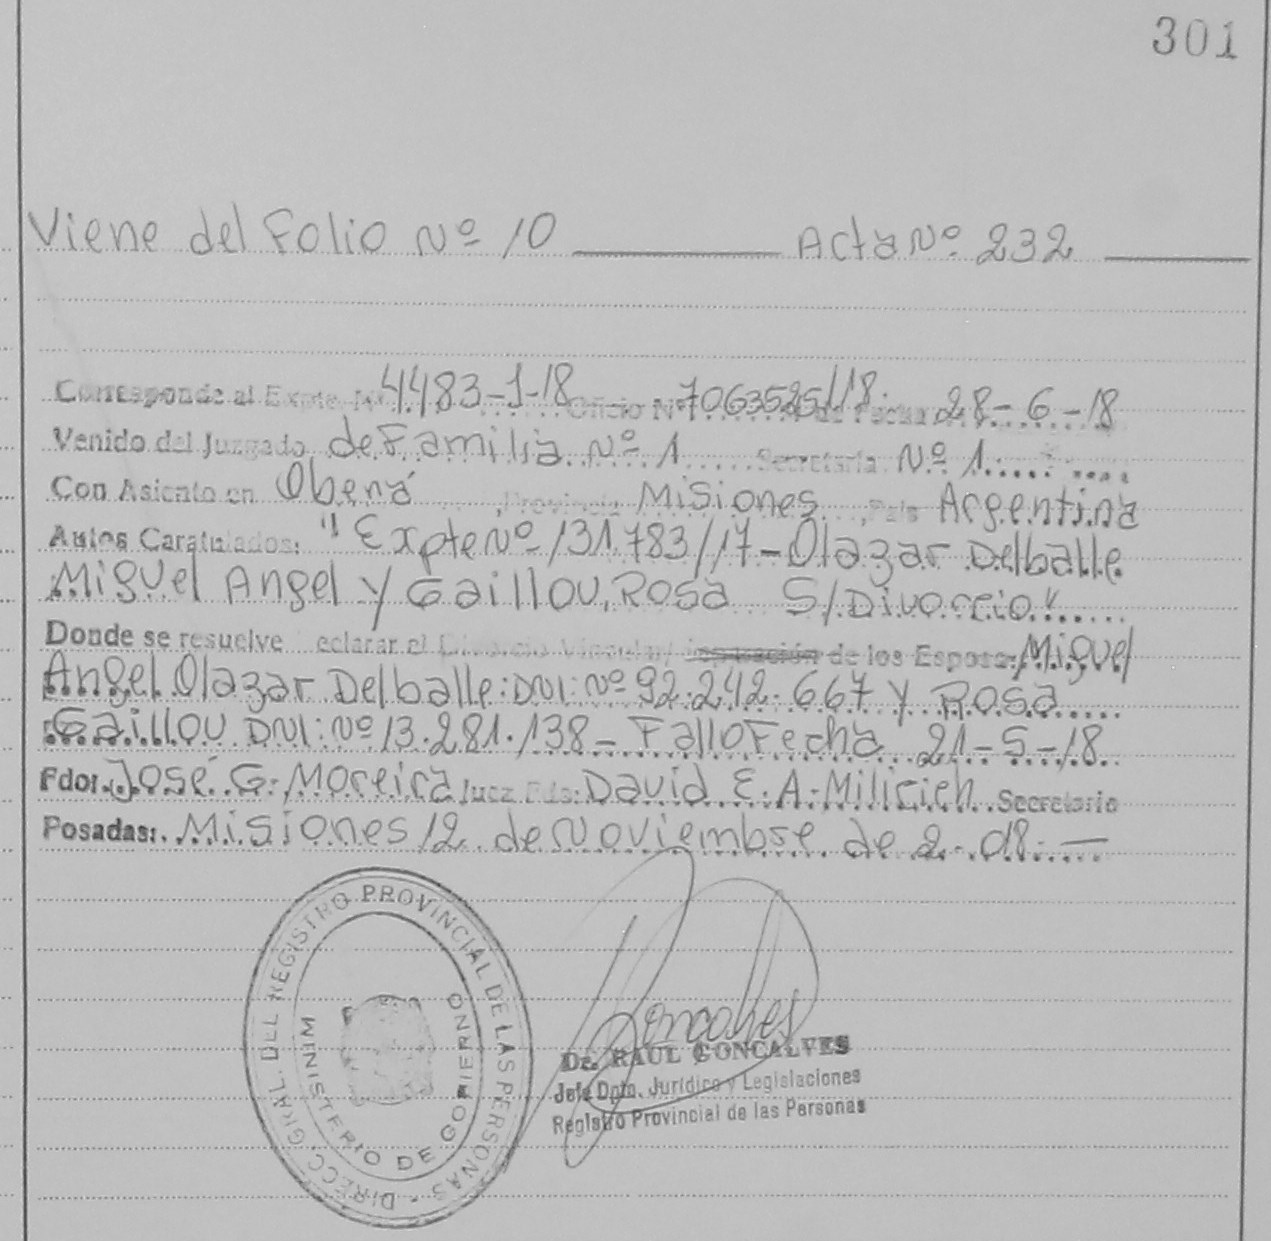 301
Viene del Folio Nº 10 Acta Nº 232
Corresponde al Expte. Nº 4483-1-18 Oficio Nº 7063525/18 de Fecha 28-6-18
Venido del Juzgado de Familia Nº 1 Secretaria Nº 1
Con Asiento en Oberá, Provincia Misiones, País Argentina
Autos Caratulados: "Expte Nº 131.783/17 - Olazar Delballe
Miguel Angel y Gaillou, Rosa S/Divorcio"
Donde se resuelve eclarar el Divorcio Vincular/ de los Esposos: Miguel
Angel Olazar Delballe: DNI: Nº 92.242.667 y Rosa
Gaillou DNI: Nº 13.281.138 - Fallo Fecha 21-5-18
Fdo: José G. Moreira Juez Fdo: David E. A. Milicich Secretario
Posadas: Misiones 12 de Noviembre de 2.018.—
DIRECC. GRAL. DEL REGISTRO PROVINCIAL DE LAS PERSONAS -
MINISTERIO DE GOBIERNO
Goncalves
Dr. RAUL GONCALVES
Jefe Dpto. Jurídico y Legislaciones
Registro Provincial de las Personas